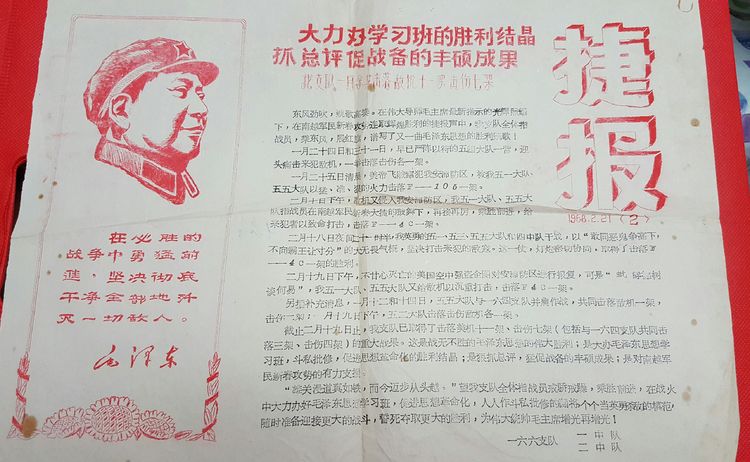 大力办学习班的胜利结晶
抓总评促战备的丰硕成果
我支队一月余来击落敌机十一架击伤七架
捷报
1968.2.21(2)
在必胜的
战争中勇猛前
进,坚决彻底
干净全部地歼
灭一切敌人。
毛泽东
东风劲吹,凯歌高奏。在伟大导师毛主席最新指示的光辉照耀
下,在南越军民新春攻势连胜的捷报声中,我支队全体指
战员,乘东风,展红旗,谱写了又一曲毛泽东思想的胜利凯歌!
一月二十四日和三十一日,早已严阵以待的五四大队一营,迎
头痛击来犯敌机,一举击落击伤各一架。
一月二十五日清晨,美帝飞贼窜我安海防区,被我五一大队、
五五大队以猛、准、狠的火力击落F—105一架。
二月十日下午,敌机又侵入我安海防区,我五一大队、五五大
队指战员在南越军民新春大捷的鼓舞下,再接再厉,乘胜前进,给
来犯者以致命打击,击落F—4C一架。
二月十八日夜间二十一时半我英勇的五一五三五五大队和四中队干战,以“敢同恶鬼争高下,
不向霸王让寸分”的大无畏气概,坚决打击来犯的敌空。这一仗,灯炮密切协同,取得了击落F
—4C一架的胜利。
二月十九日下午,不甘心死亡的美国空中强盗企图对安海防区进行报复,可是“蚍蜉撼树
谈何易”,我五一大队、五五大队又给敌机以沉重打击,击落F—4C一架。
另据补充消息,一月十二和十四日,五五大队与一六四支队并肩作战,共同击落敌机一架,
击伤二架;一月十九日下午,五二大队击落击伤敌机各一架。
截止二月十九日止,我支队已取得了击落美机十一架、击伤七架(包括与一六四支队共同击
落三架、击伤四架)的重大战果。这是战无不胜的毛泽东思想的伟大胜利;是大办毛泽东思想学
习班,斗私批修,促进思想革命化的胜利结晶;是狠抓总评,猛促战备的丰硕成果;是对南越军
民新春攻势的有力支援。
“雄关漫道真如铁,而今迈步从头越。”望我支队全体指战员戒骄戒躁,乘胜前进,在战火
中大力办好毛泽东思想学习班,促进思想革命化,人人作斗私批修的闯将个个当英勇杀敌的模范,
随时准备迎接更大的战斗,誓死夺取更大的胜利,为伟大统帅毛主席增光再增光!
一六六支队 一中队
二中队